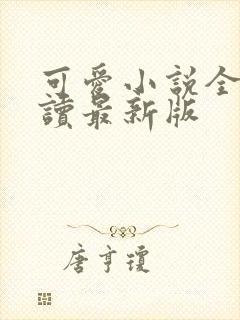 可愛小說全
讀最新版
唐亨瓊